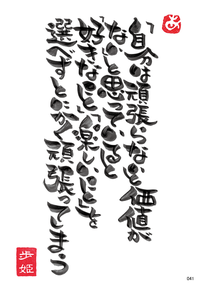 あ
「自分は頑張らないと価値が
ない」と思っていると
「好きなこと」「楽しいこと」を
選べずとにかく頑張ってしまう
歩姫
041